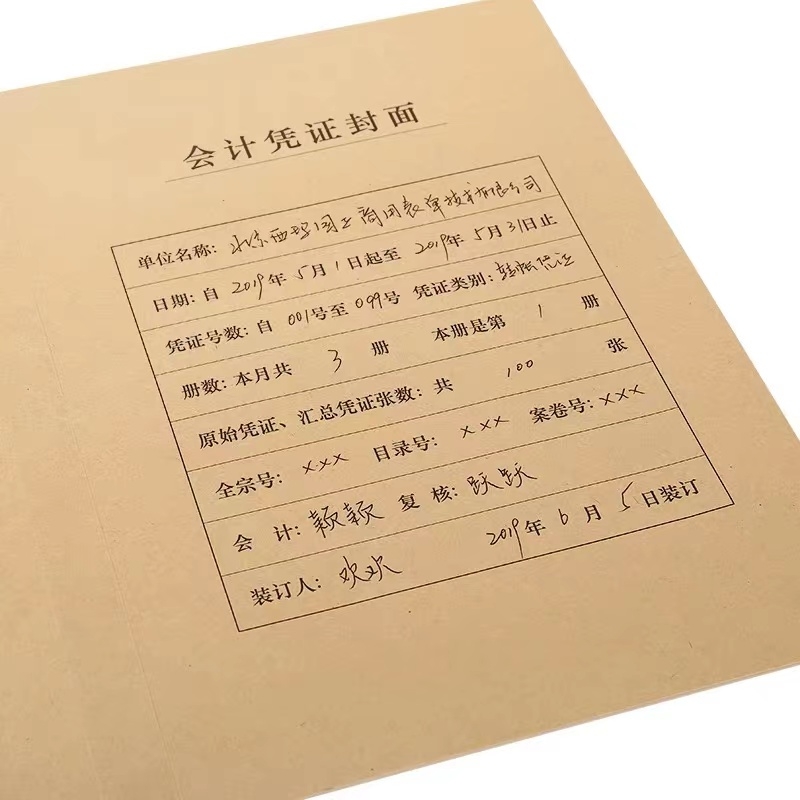 会计凭证封面
单位名称: 北京西玛国正商用表单技术有限公司
日期: 自 2019 年 5 月 1 日起至 2019 年 5 月 31 日止
凭证号数: 自 001 号至 099 号 凭证类别: 转帐凭证
册数: 本月共 3 册 本册是第 1 册
原始凭证、汇总凭证张数: 共 100 张
全宗号: ××× 目录号: ××× 案卷号: ×××
会 计: 颖颖 复 核: 跃跃
装订人: 欢欢 2019 年 6 月 5 日装订